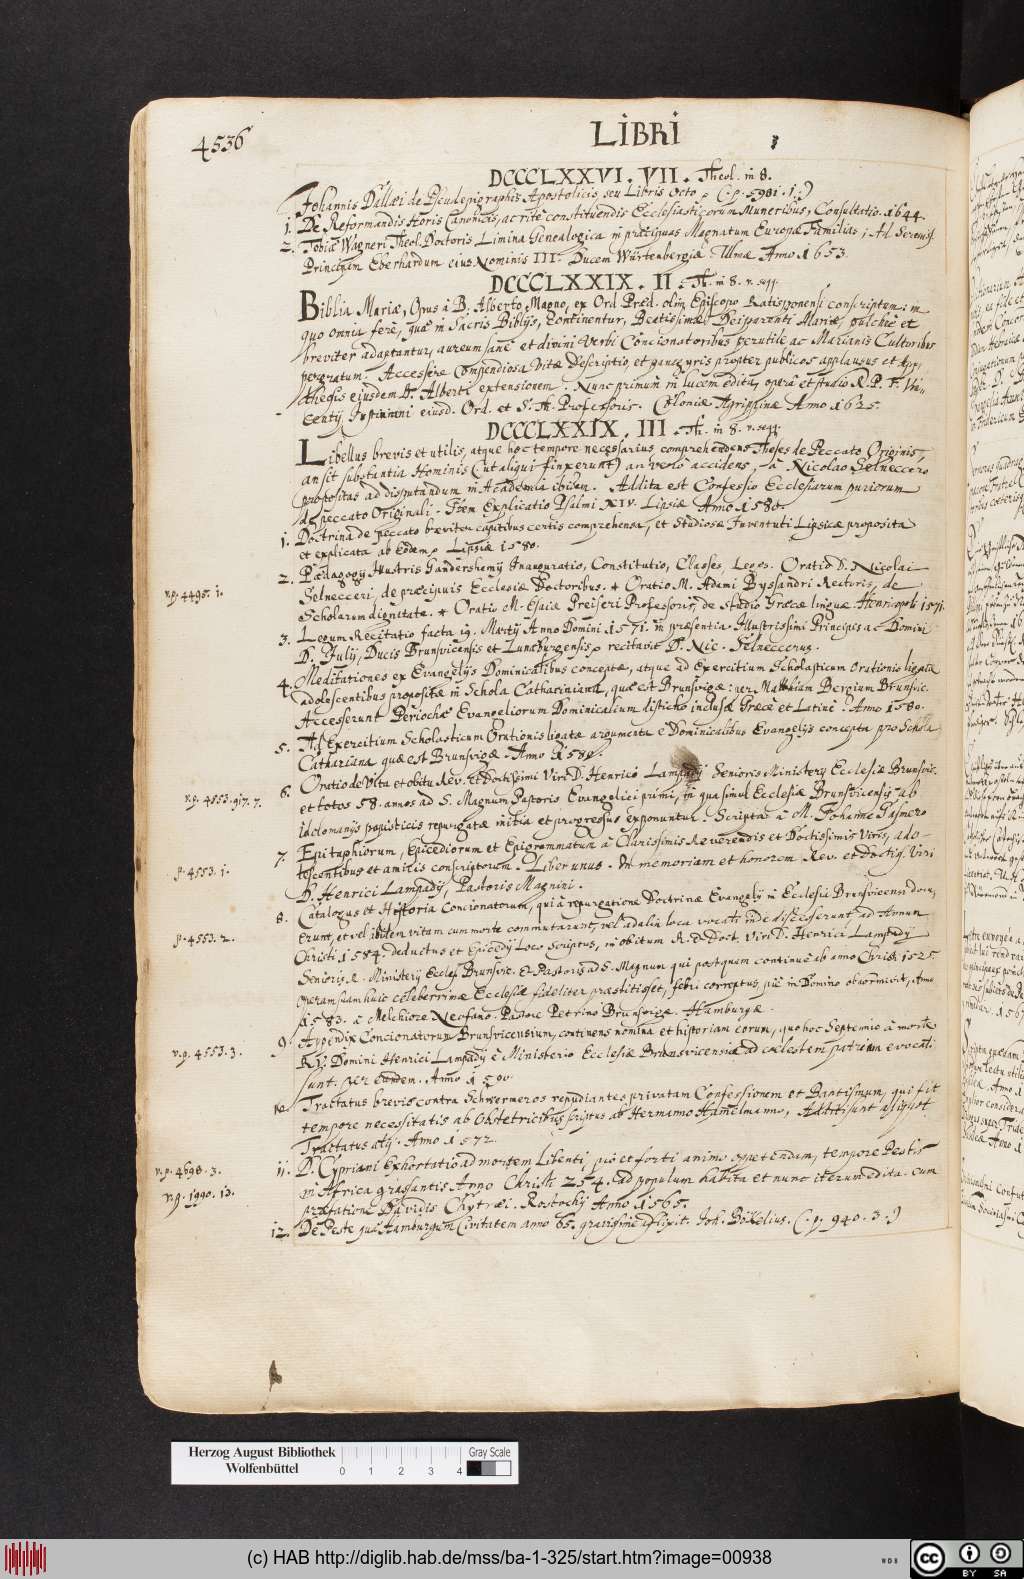 4536
LIBRI
DCCCLXXVI. VII. Theol. in 8.
Johannis Dallæi de Pseudepigraphis Apostolicis, seu Libris Octo (p. 5981. 1.)
1. De Reformandis Horis Canonicis, ac rite constituendis Ecclesiasticorum Muneribus, Consultatio. 1644.
2. Tobiæ Wagneri Theol. Doctoris Limina Genealogica in præcipuas Magnatum Europæ Familias; Ad Sereniss.
Principem Eberhardum ejus Nominis III. Ducem Würtenbergiæ Ulmæ Anno 1653.
DCCCLXXIX. II. Th. in 8. v. seqq.
Biblia Mariæ, Opus à B. Alberto Magno, ex Ord. Præd. olim Episcopo Ratisponensi conscriptum: in
quo omnia ferè, quæ in Sacris Biblijs, continentur, Beatissimæ Deiparenti Mariæ, pulchrè et
breviter adaptantur, aureum sanè et divini Verbi Concionatoribus perutile, ac Marianis Cultoribus
pergratum. Accessere Compendiosa Vitæ Descriptio, et panegyris propter publicos applausus et Apo-
theosis ejusdem B. Alberti extensionem. Nunc primum in lucem edita, operâ et studio R. P. F. Vin-
centij Justiniani ejusd. Ord. et S. Th. Professoris. Coloniæ Agrippinæ Anno 1625.
DCCCLXXIX. III. Th. in 8. v. seqq.
Libellus brevis et utilis, atque hoc tempore necessarius comprehendens Theses de Peccato Originis,
an sit substantia Hominis (ut aliqui finxerunt) an verò accidens, à Nicolao Selneccero
propositas ad disputandum in Academia ibidem. Addita est Confessio Ecclesiarum puriorum
de peccato Originali. Item Explicatio Psalmi XIV. Lipsiæ Anno 1580.
1. Doctrina de peccato breviter capitibus certis comprehensa, et Studiosæ Juventuti Lipsicæ proposita
et explicata ab Eodem. Lipsiæ 1580.
v.p. 4495. 1.
2. Pædagogij Illustris Gandershemij Inauguratio, Constitutio, Classes, Leges. Oratio D. Nicolai
Selnecceri, de præcipuis Ecclesiæ Doctoribus. * Oratio M. Adami Bysandri Rectoris, de
Scholarum dignitate. * Oratio M. Esaiæ Preiseri Professoris, de Studio Græcæ linguæ. Henricopoli 1571.
3. Legum Recitatio facta 19. Martij Anno Domini 1571. in præsentia Illustrissimi Principis ac Domini
D. Julij, Ducis Brunsvicensis et Lunæburgensis, recitavit D. Nic. Selneccerus.
4. Meditationes ex Evangelijs Dominicalibus conceptæ, atque ad Exercitium Scholasticum Orationis ligatæ
adolescentibus propositæ in Schola Cathariniana, quæ est Brunsvigæ: per Matthiam Bergium Brunsvic.
Accesserunt Periochæ Evangeliorum Dominicalium disticho inclusæ Græcè et Latinè. Anno 1580.
5. Ad Exercitium Scholasticum Orationis ligatæ argumenta è Dominicalibus Evangelijs concepta pro Schola
Cathariana quæ est Brunsvigæ. Anno 1580.
v.p. 4553. 917. 7.
6. Oratio de Vita et obitu Rev. et Doctissimi Viri D. Henrici Lampadij Senioris Ministerij Ecclesiæ Brunsvic.
et totos 58. annos ad S. Magnum Pastoris Evangelici primi, in qua simul Ecclesiæ Brunsvicensis ab
idolomanijs papisticis repurgatæ initia et progressus exponuntur. Scripta à M. Johanne Gasmero
p. 4553. 1.
7. Epitaphiorum, Epicediorum et Epigrammatum à Clarissimis Reverendis et Doctissimis Viris, ado-
lescentibus et amicis conscriptorum. Liber unus. In memoriam et honorem Rev. et Doctiss. Viri
D. Henrici Lampadij, Pastoris Magnini.
p. 4553. 2.
8. Catalogus et Historia Concionatorum, qui à repurgatione Doctrinæ Evangelij in Ecclesia Brunsvicensi docu-
erunt, et vel ibidem vitam cum morte commutarunt, vel ad alia loca vocati inde discesserunt ad Annum
Christi 1584. deductus et Epicedij Loco scriptus, in obitum R. et Doct. Viri D. Henrici Lampadij
Senioris R. Ministerij Eccles. Brunsvic. et Pastoris ad S. Magnum qui postquam continuè ab anno Christi 1525.
operam suam huic celeberrimæ Ecclesiæ fideliter præstitisset, febri correptus, piè in Domino obdormivit, Anno
1583. à Melchiore Neofano. Pastore Petrino Brunsvigæ. Hamburgæ.
v.p. 4553. 3.
9. Appendix Concionatorum Brunsvicensium, continens nomina et historiam eorum, quo hoc Septennio à morte
R. V. Domini Henrici Lampadij è Ministerio Ecclesiæ Brunsvicensis ad cœlestem patriam evocati
sunt. per Eundem. Anno 1590.
10. Tractatus brevis contra Schwermeros repudiantes privatam Confessionem et Baptismum, qui fit
tempore necessitatis ab Obstetricibus, scriptus ab Hermanno Hamelmanno, Additi sunt aliquot
Tractatus alij. Anno 1572.
v.p. 4698. 3.
v.p. 1990. 13.
11. D. Cypriani Exhortatio ad mortem Libenti, pio et forti animo oppetendam, tempore Pestis
in Africa grassantis Anno Christi 254. ad populum habita et nunc iterum edita. cum
præfatione Davidis Chytræi. Rostochij Anno 1565.
12. De Peste quæ Hamburgum Civitatem anno 65. gravissimè afflixit. Joh. Bökelius. (p. 940. 3.)
Herzog August Bibliothek
Wolfenbüttel
0 1 2 3 4
Gray Scale
(c) HAB http://diglib.hab.de/mss/ba-1-325/start.htm?image=00938
WDB
CC BY SA